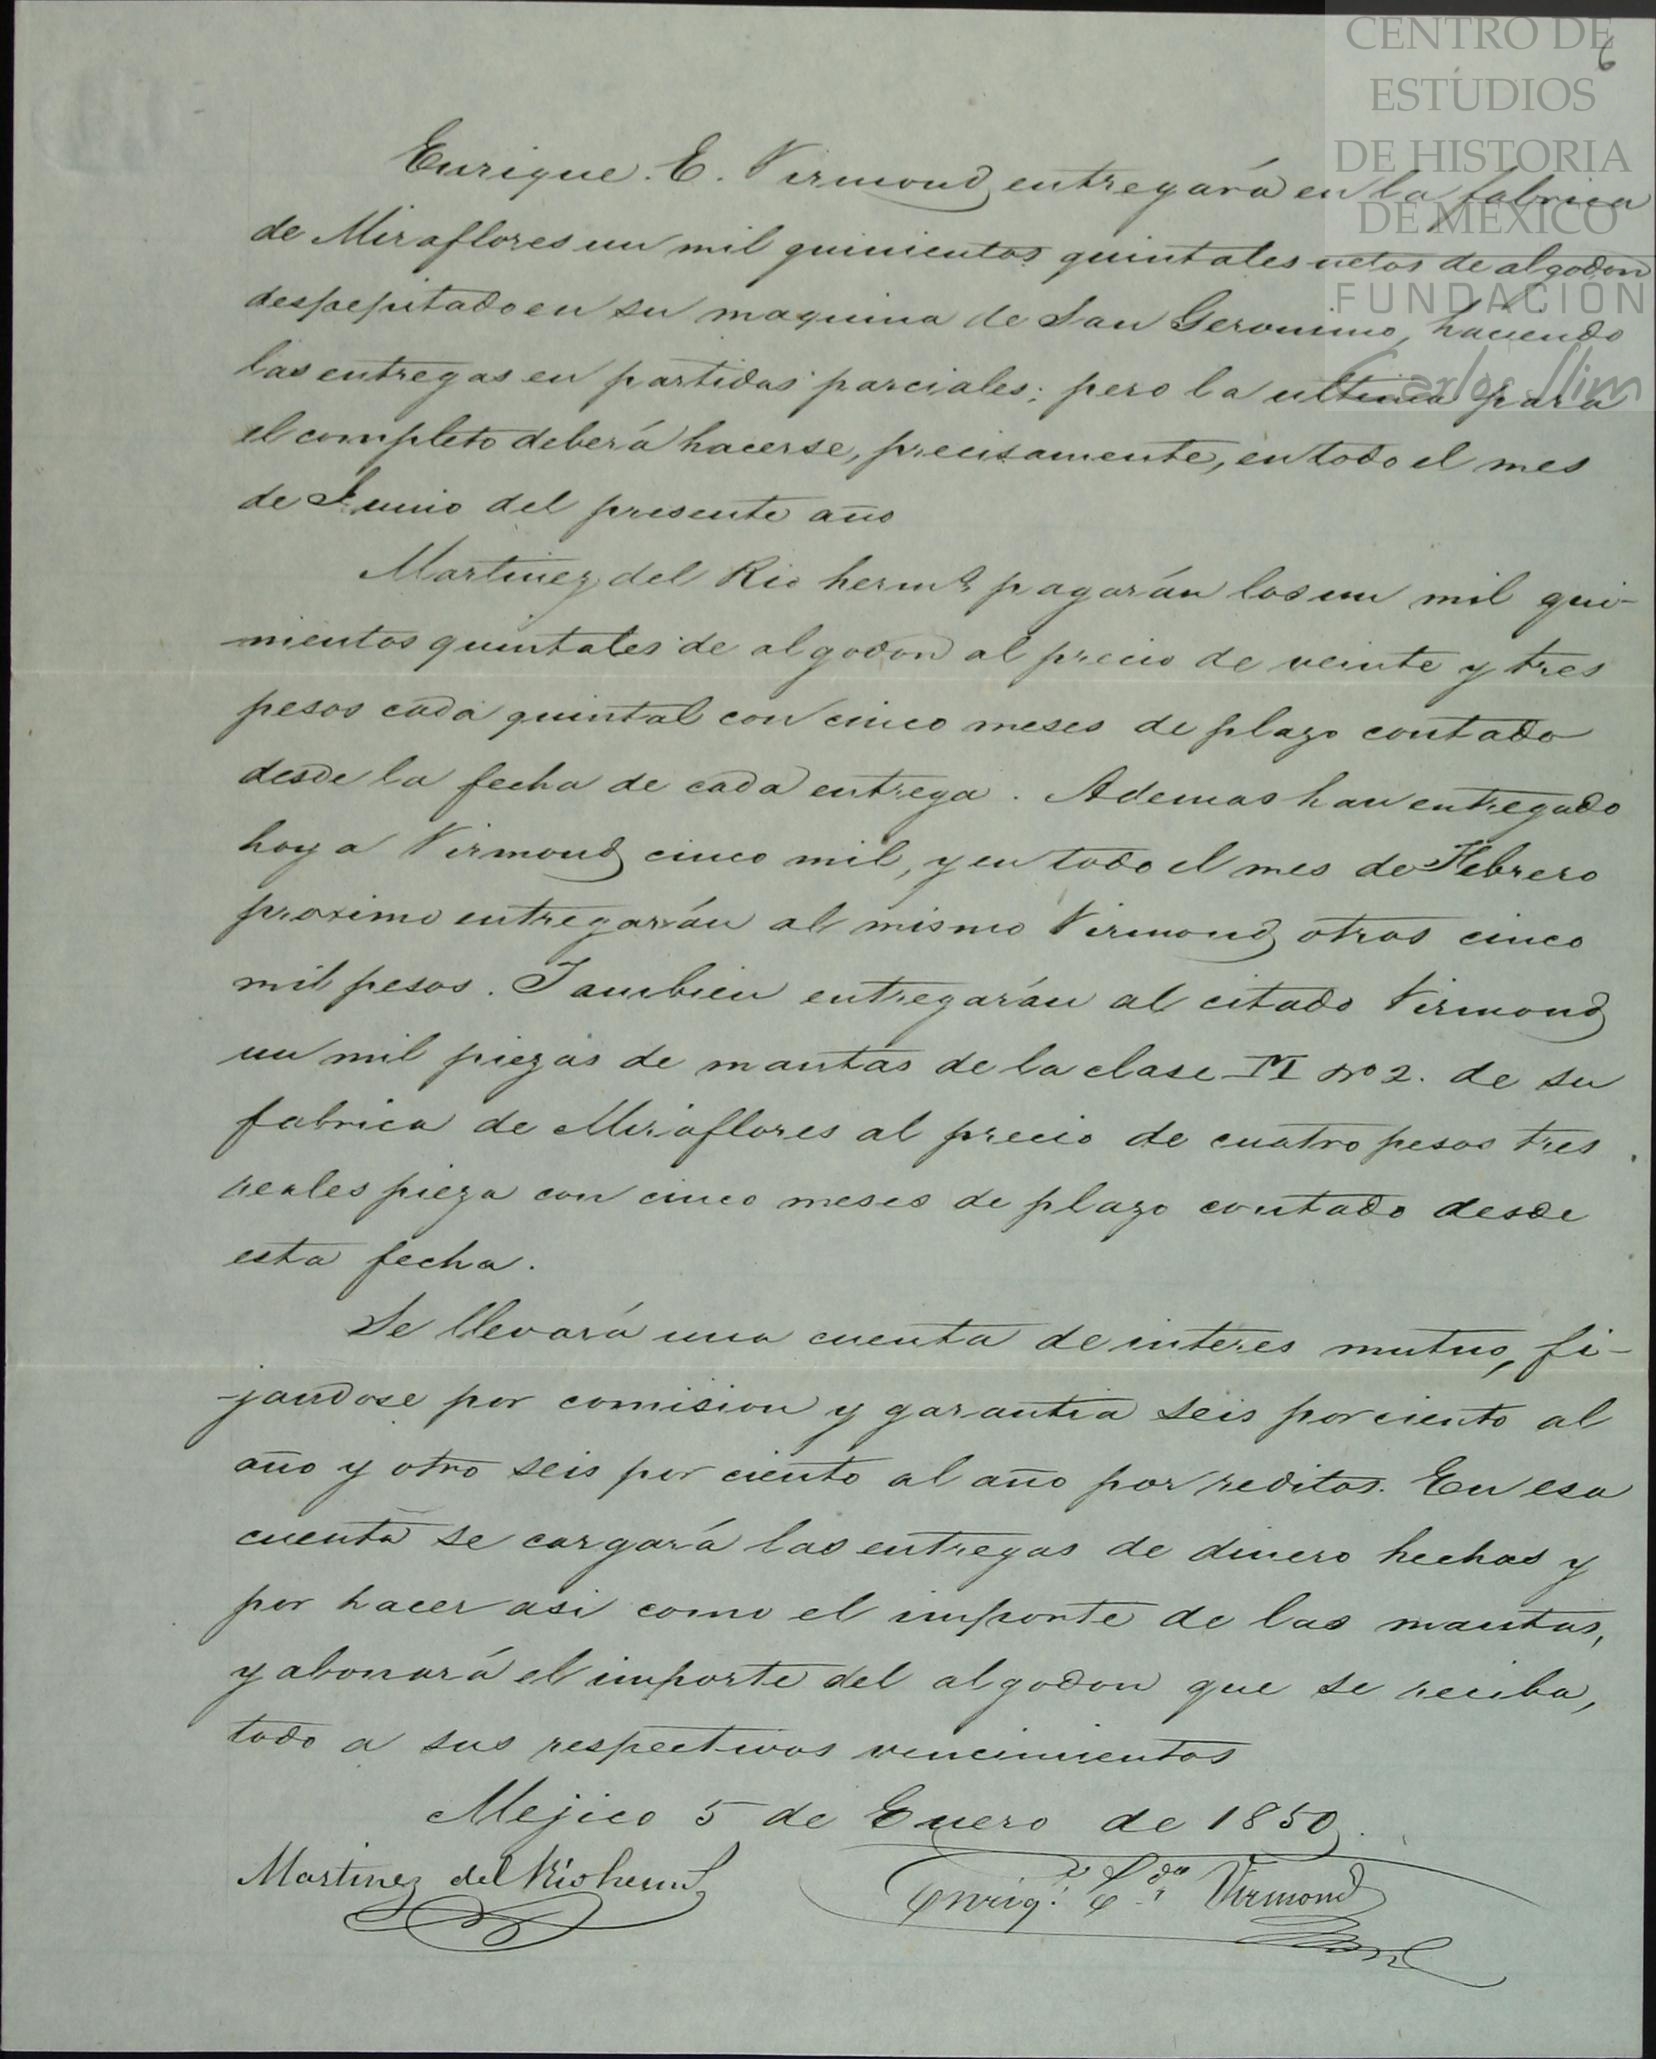 CENTRO DE
ESTUDIOS
DE HISTORIA
DE MEXICO
FUNDACIÓN
Carlos Slim
6
Enrique. E. Virmond entregará en la fabrica
de Miraflores un mil quinientos quintales netos de algodon
despepitado en su maquina de San Geronimo, haciendo
las entregas en partidas parciales; pero la ultima para
el completo deberá hacerse, precisamente, en todo el mes
de Junio del presente año
Martinez del Rio hermˢ pagarán los un mil qui-
-nientos quintales de algodon al precio de veinte y tres
pesos cada quintal con cinco meses de plazo contado
desde la fecha de cada entrega. Ademas han entregado
hoy a Virmond cinco mil, y en todo el mes de Febrero
proximo entregarán al mismo Virmond otros cinco
mil pesos. Tambien entregarán al citado Virmond
un mil piezas de mantas de la clase M nº 2. de su
fabrica de Miraflores al precio de cuatro pesos tres
reales pieza con cinco meses de plazo contado desde
esta fecha.
Se llevará una cuenta de interes mutuo, fi-
-jandose por comision y garantia seis por ciento al
año y otro seis por ciento al año por reditos. En esa
cuenta se cargará las entregas de dinero hechas y
por hacer asi como el importe de las mantas,
y abonará el importe del algodon que se reciba,
todo a sus respectivos vencimientos
Mejico 5 de Enero de 1850.
Martinez del Rio hermˢ
Enriq.ᵉ E.ᵈᵒ Virmond